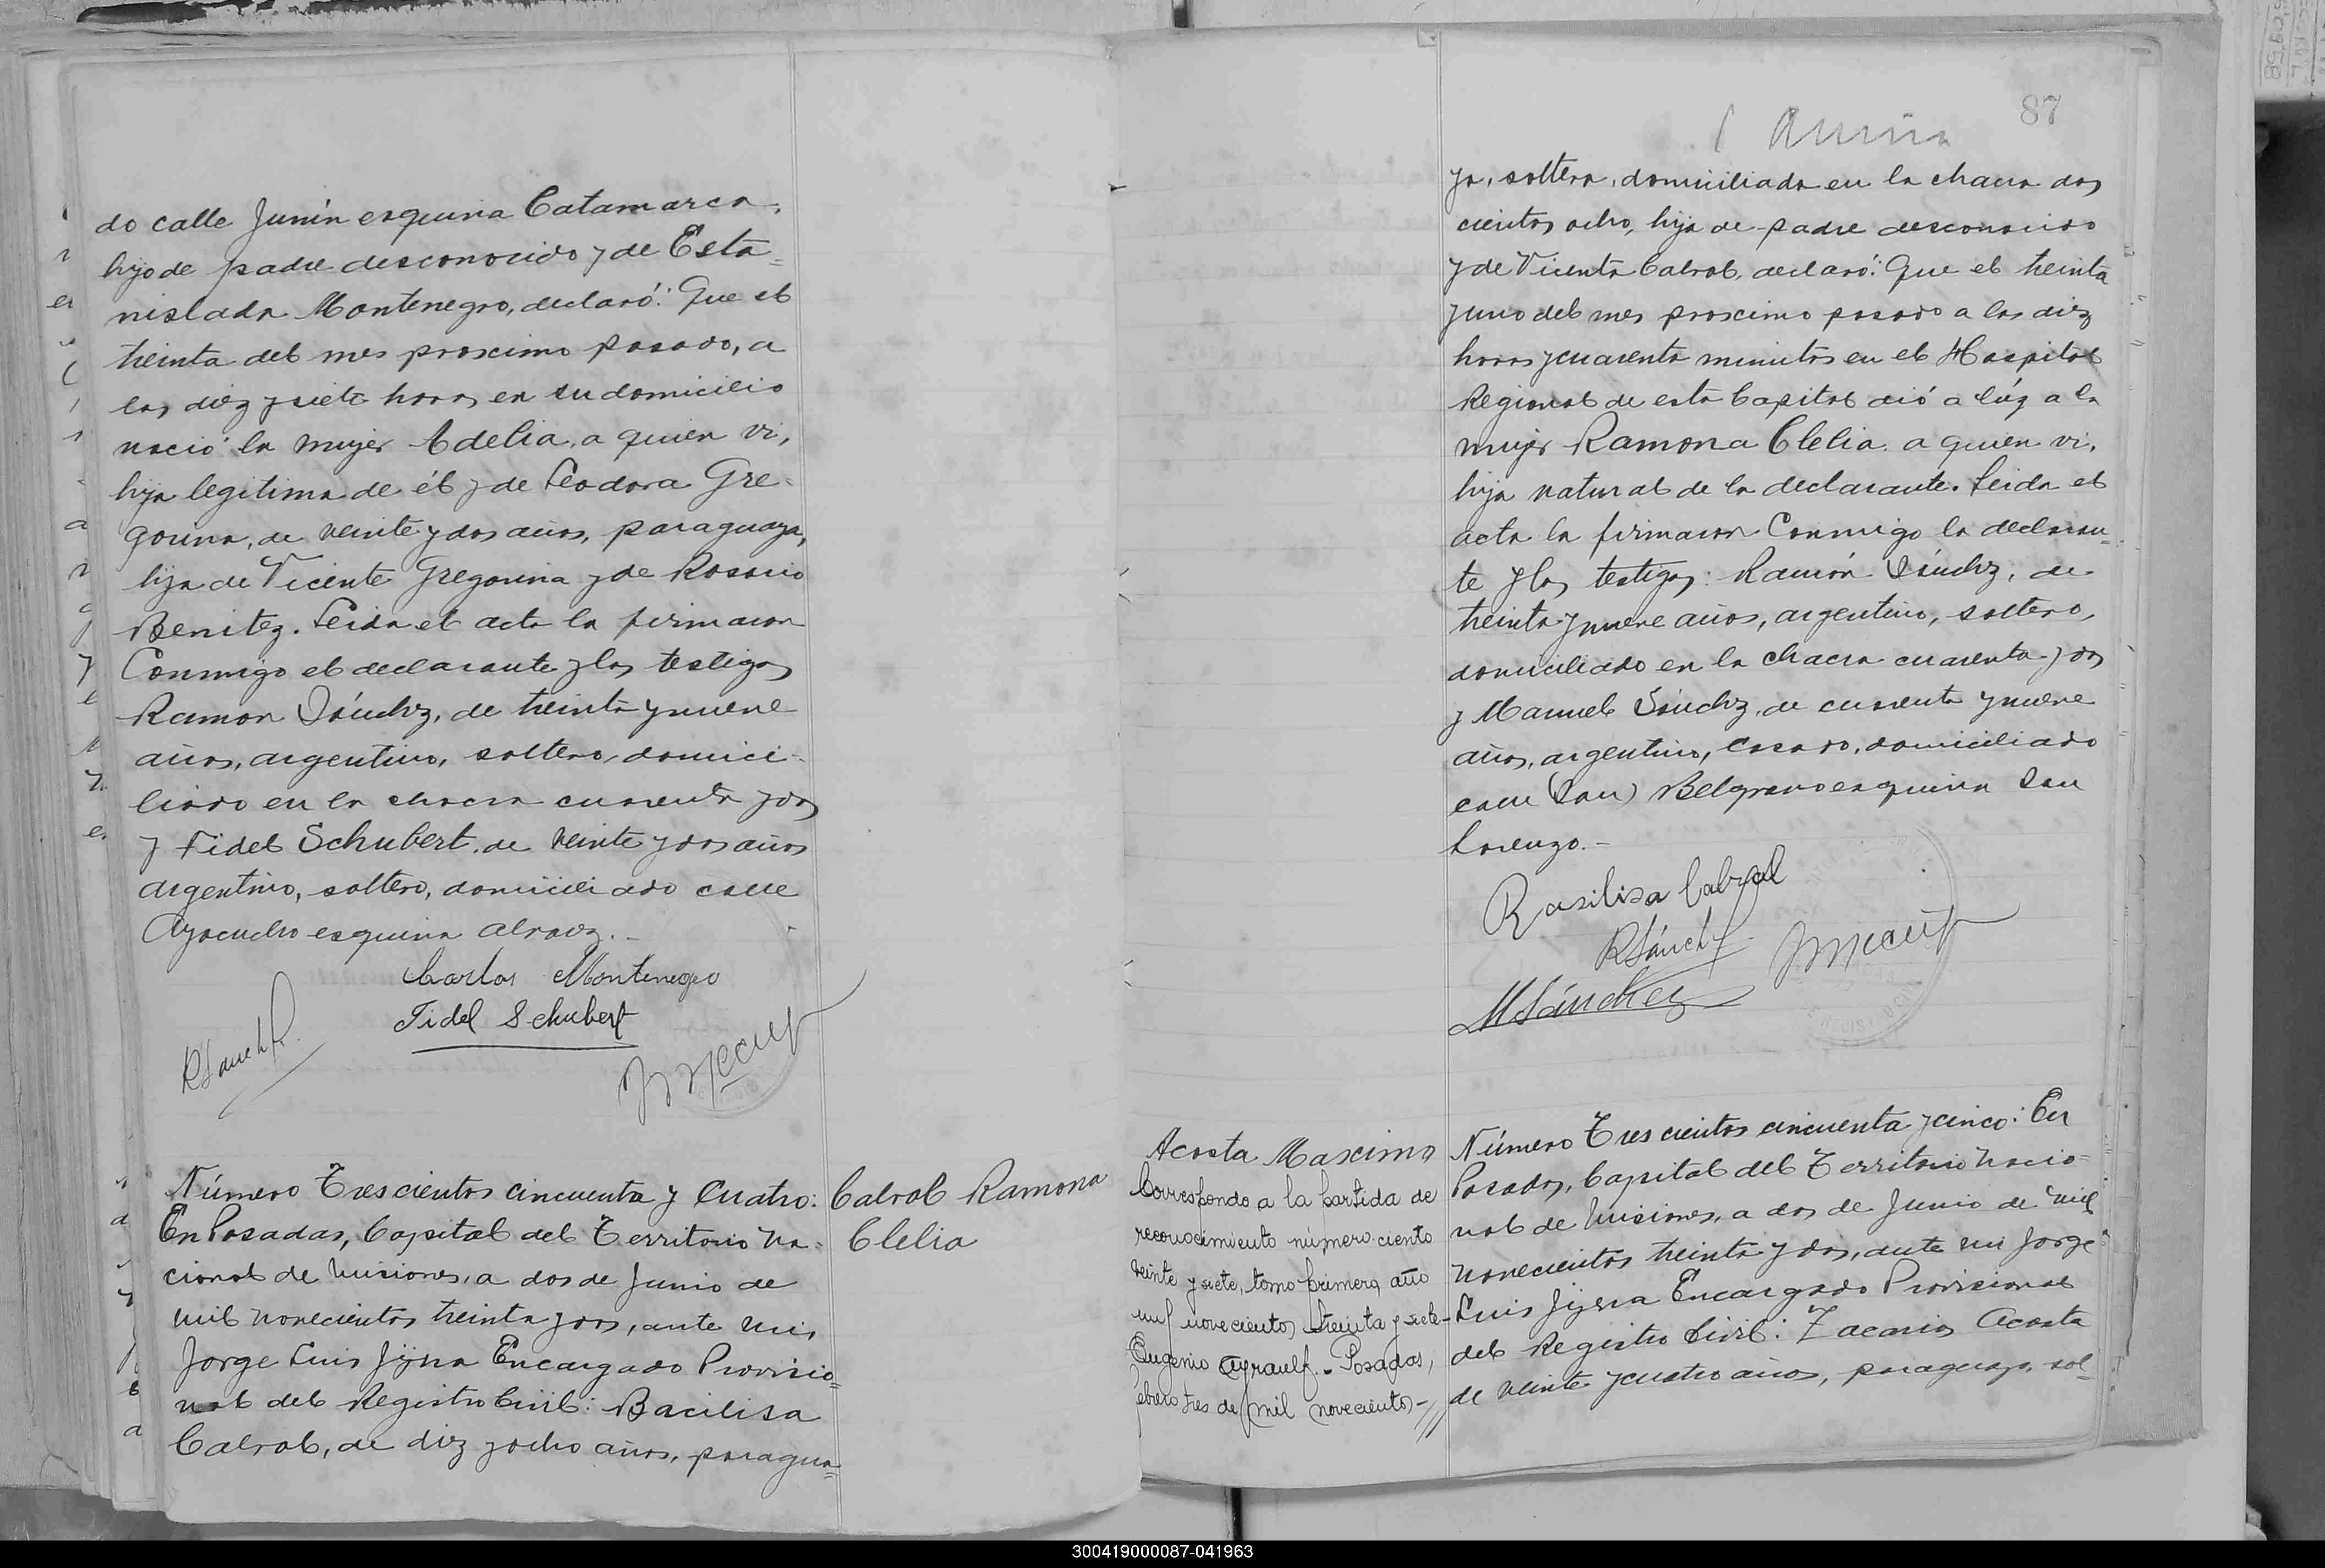 do calle Junín esquina Catamarca,
hijo de padre desconocido y de Esta=
nislada Montenegro, declaró: Que el
treinta del mes proscimo pasado, a
las diez y siete horas en su domicilio
nació la mujer Adelia, a quien vi,
hija legítima de él y de Leodora Gre-
gorina, de veinte y dos años, paraguaya,
hija de Vicente Gregorina y de Rosario
Benitez. Leida el acta la firmaron
Conmigo el declarante y los testigos
Ramon Sánchz, de treinta y nueve
años, argentino, soltero, domici-
liado en la chacra cuarenta y dos
y Fidel Schubert, de veinte y dos años
argentino, soltero, domiciliado calle
Ayacucho esquina Alvarz.-
Carlos Montenegro
Fidel Schubert
RSanch
Número Trescientos cincuenta y Cuatro:
En Posadas, Capital del Territorio Na-
cional de Misiones, a dos de Junio de
mil novecientos treinta y dos, ante mi,
Jorge Luis Encargado Provisio=
nal del Registro Civil: Bacilisa
Cabral, de diez y ocho años, paragua=
Cabral Ramona
Clelia
87
ya, soltera, domiciliada en la chacra dos
cientos ocho, hija de padre desconocido
y de Vicenta Cabral, declaró: Que el treinta
y uno del mes proscimo pasado a las diez
horas y cuarenta minutos en el Hospital
Regional de esta Capital dió a lúz a la
mujer Ramona Clelia a quien vi,
hija natural de la declarante. Leida el
acta la firmaron Conmigo la declaran=
te y los testigos: Ramón Sánchz, de
treinta y nueve años, argentino, soltero,
domiciliado en la chacra cuarenta y dos
y Manuel Sánchz, de cuarenta y nueve
años, argentino, casado, domiciliado
calle (San) Belgrano esquina San
Lorenzo.-
Basilisa Cabral
RSánch
MSánchez
Acosta Mascimo
Corresponde a la partida de
reconocimiento número ciento
veinte y siete, tomo primero, año
mil novecientos treinta y siete-
Eugenio Ayrault.- Posadas,
ebrero tres de mil novecientos-//
Número Trescientos cincuenta y cinco: En
Posadas, Capital del Territorio Nacio=
nal de Misiones, a dos de Junio de mil
novecientos treinta y dos, ante mi Jorge
Luis Encargado Provisional
del Registro Civil: Zacarias Acosta
de veinte y cuatro años, paraguayo, sol=
300419000087-041963